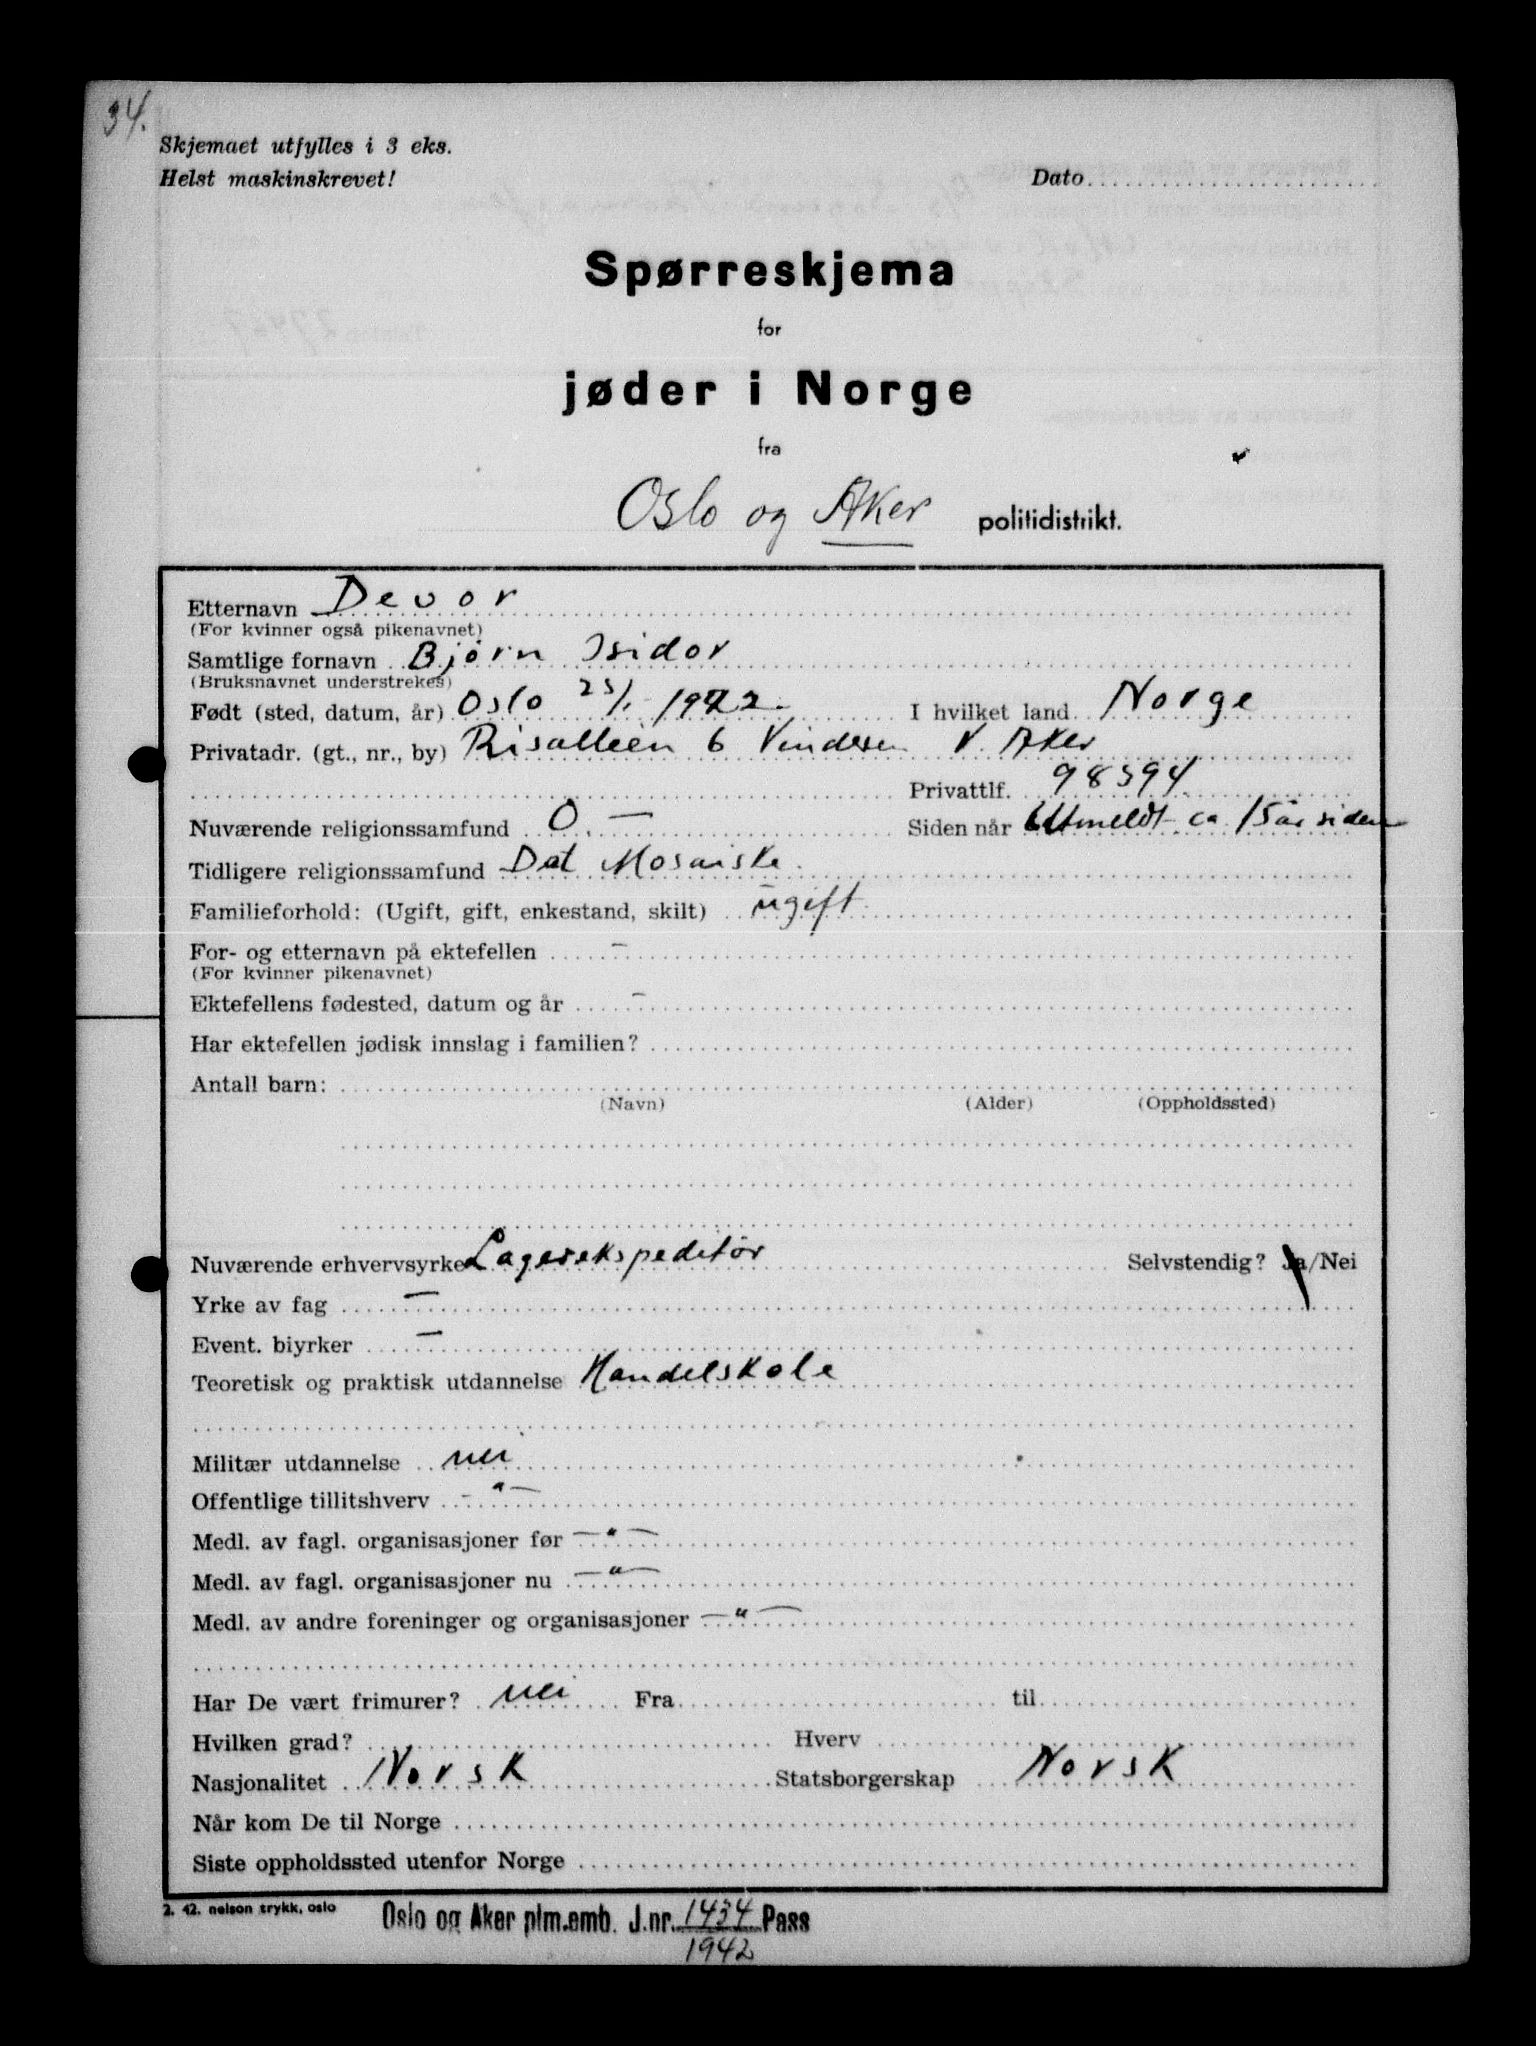 34.
Skjemaet utfylles i 3 eks.
Helst maskinskrevet!
Dato
Spørreskjema
for
jøder i Norge
fra
Oslo og Aker politidistrikt.
Etternavn Devor
(For kvinner også pikenavnet)
Samtlige fornavn Bjørn Isidor
(Bruksnavnet understrekes)
Født (sted, datum, år) Oslo 23/1. 1922. I hvilket land Norge
Privatadr. (gt., nr., by) Risalleen 6 Vinderen V. Aker
Privattlf. 98594
Nuværende religionssamfund O. — Siden når Utmeldt ca 15 år siden
Tidligere religionssamfund Det Mosaiske
Familieforhold: (Ugift, gift, enkestand, skilt) ugift
For- og etternavn på ektefellen –
(For kvinner pikenavnet)
Ektefellens fødested, datum og år –
Har ektefellen jødisk innslag i familien?
Antall barn:
(Navn) (Alder) (Oppholdssted)
Nuværende erhvervsyrke Lagerekspeditør Selvstendig? Ja/Nei
Yrke av fag —
Event. biyrker —
Teoretisk og praktisk utdannelse Handelskole
Militær utdannelse nei
Offentlige tillitshverv –"–
Medl. av fagl. organisasjoner før –"–
Medl. av fagl. organisasjoner nu –"–
Medl. av andre foreninger og organisasjoner –"–
Har De vært frimurer? nei Fra til
Hvilken grad? Hverv
Nasjonalitet Norsk Statsborgerskap Norsk
Når kom De til Norge
Siste oppholdssted utenfor Norge
2. 42. nelson trykk, oslo
Oslo og Aker plm.emb. J.nr. 1434 Pass
1942